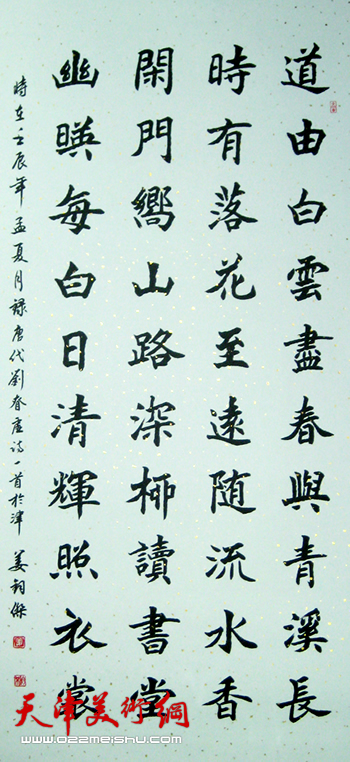 道由白雲盡春與青溪長
時有落花至遠随流水香
閑門嚮山路深柳讀書堂
幽暎每白日清輝照衣裳
時在壬辰年孟夏月録唐代劉眘虛詩一首於津 姜鈞傑
天津美術網
www.022meishu.com